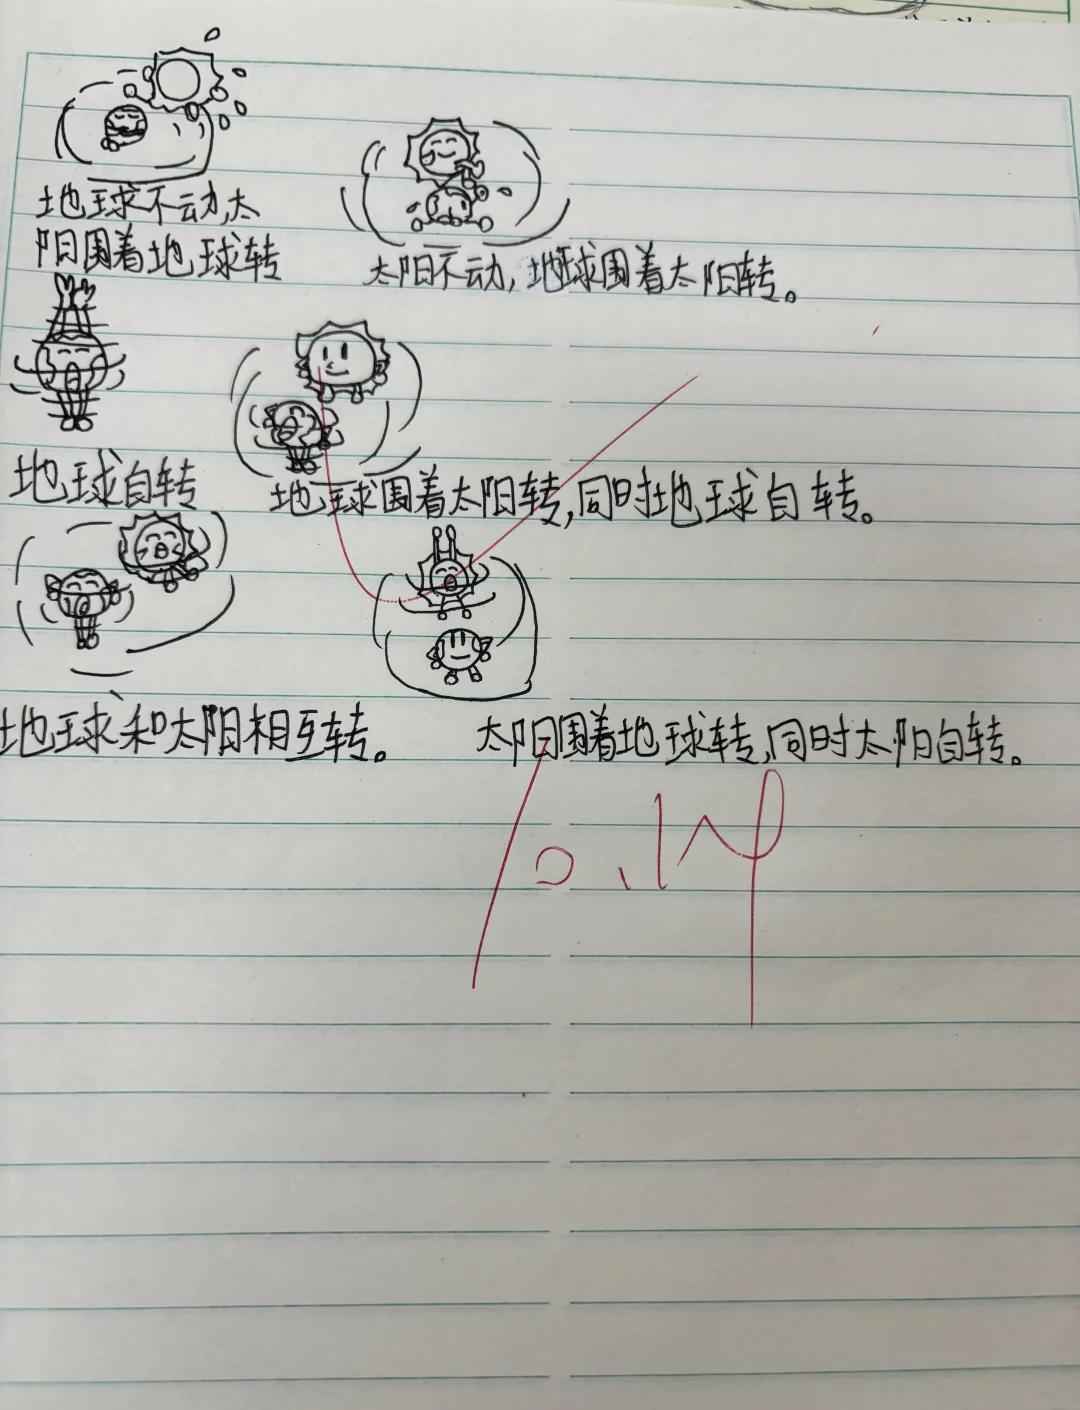 地球不动,太
阳围着地球转
太阳不动,地球围着太阳转。
地球自转
地球围着太阳转,同时地球自转。
地球和太阳相互转。
太阳围着地球转,同时太阳自转。